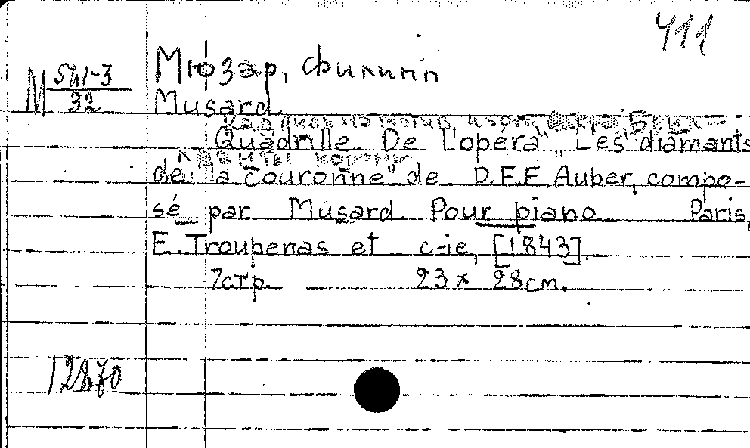 411
М 541-3/32
Мюзар, Филипп
Musard
Quadrille De l'opéra "Les diamants
de la couronne" de D.F.E Auber, compo-
sé par Musard Pour piano Paris,
E. Troupenas et c-ie, [1843].
7стр. 23 x 28см.
12870